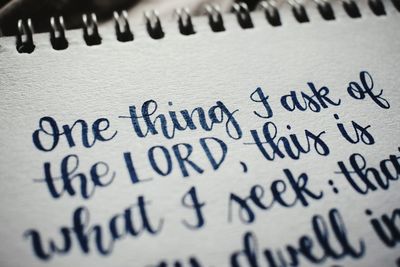 One thing I ask of
the LORD, this is
what I seek: that
may dwell in